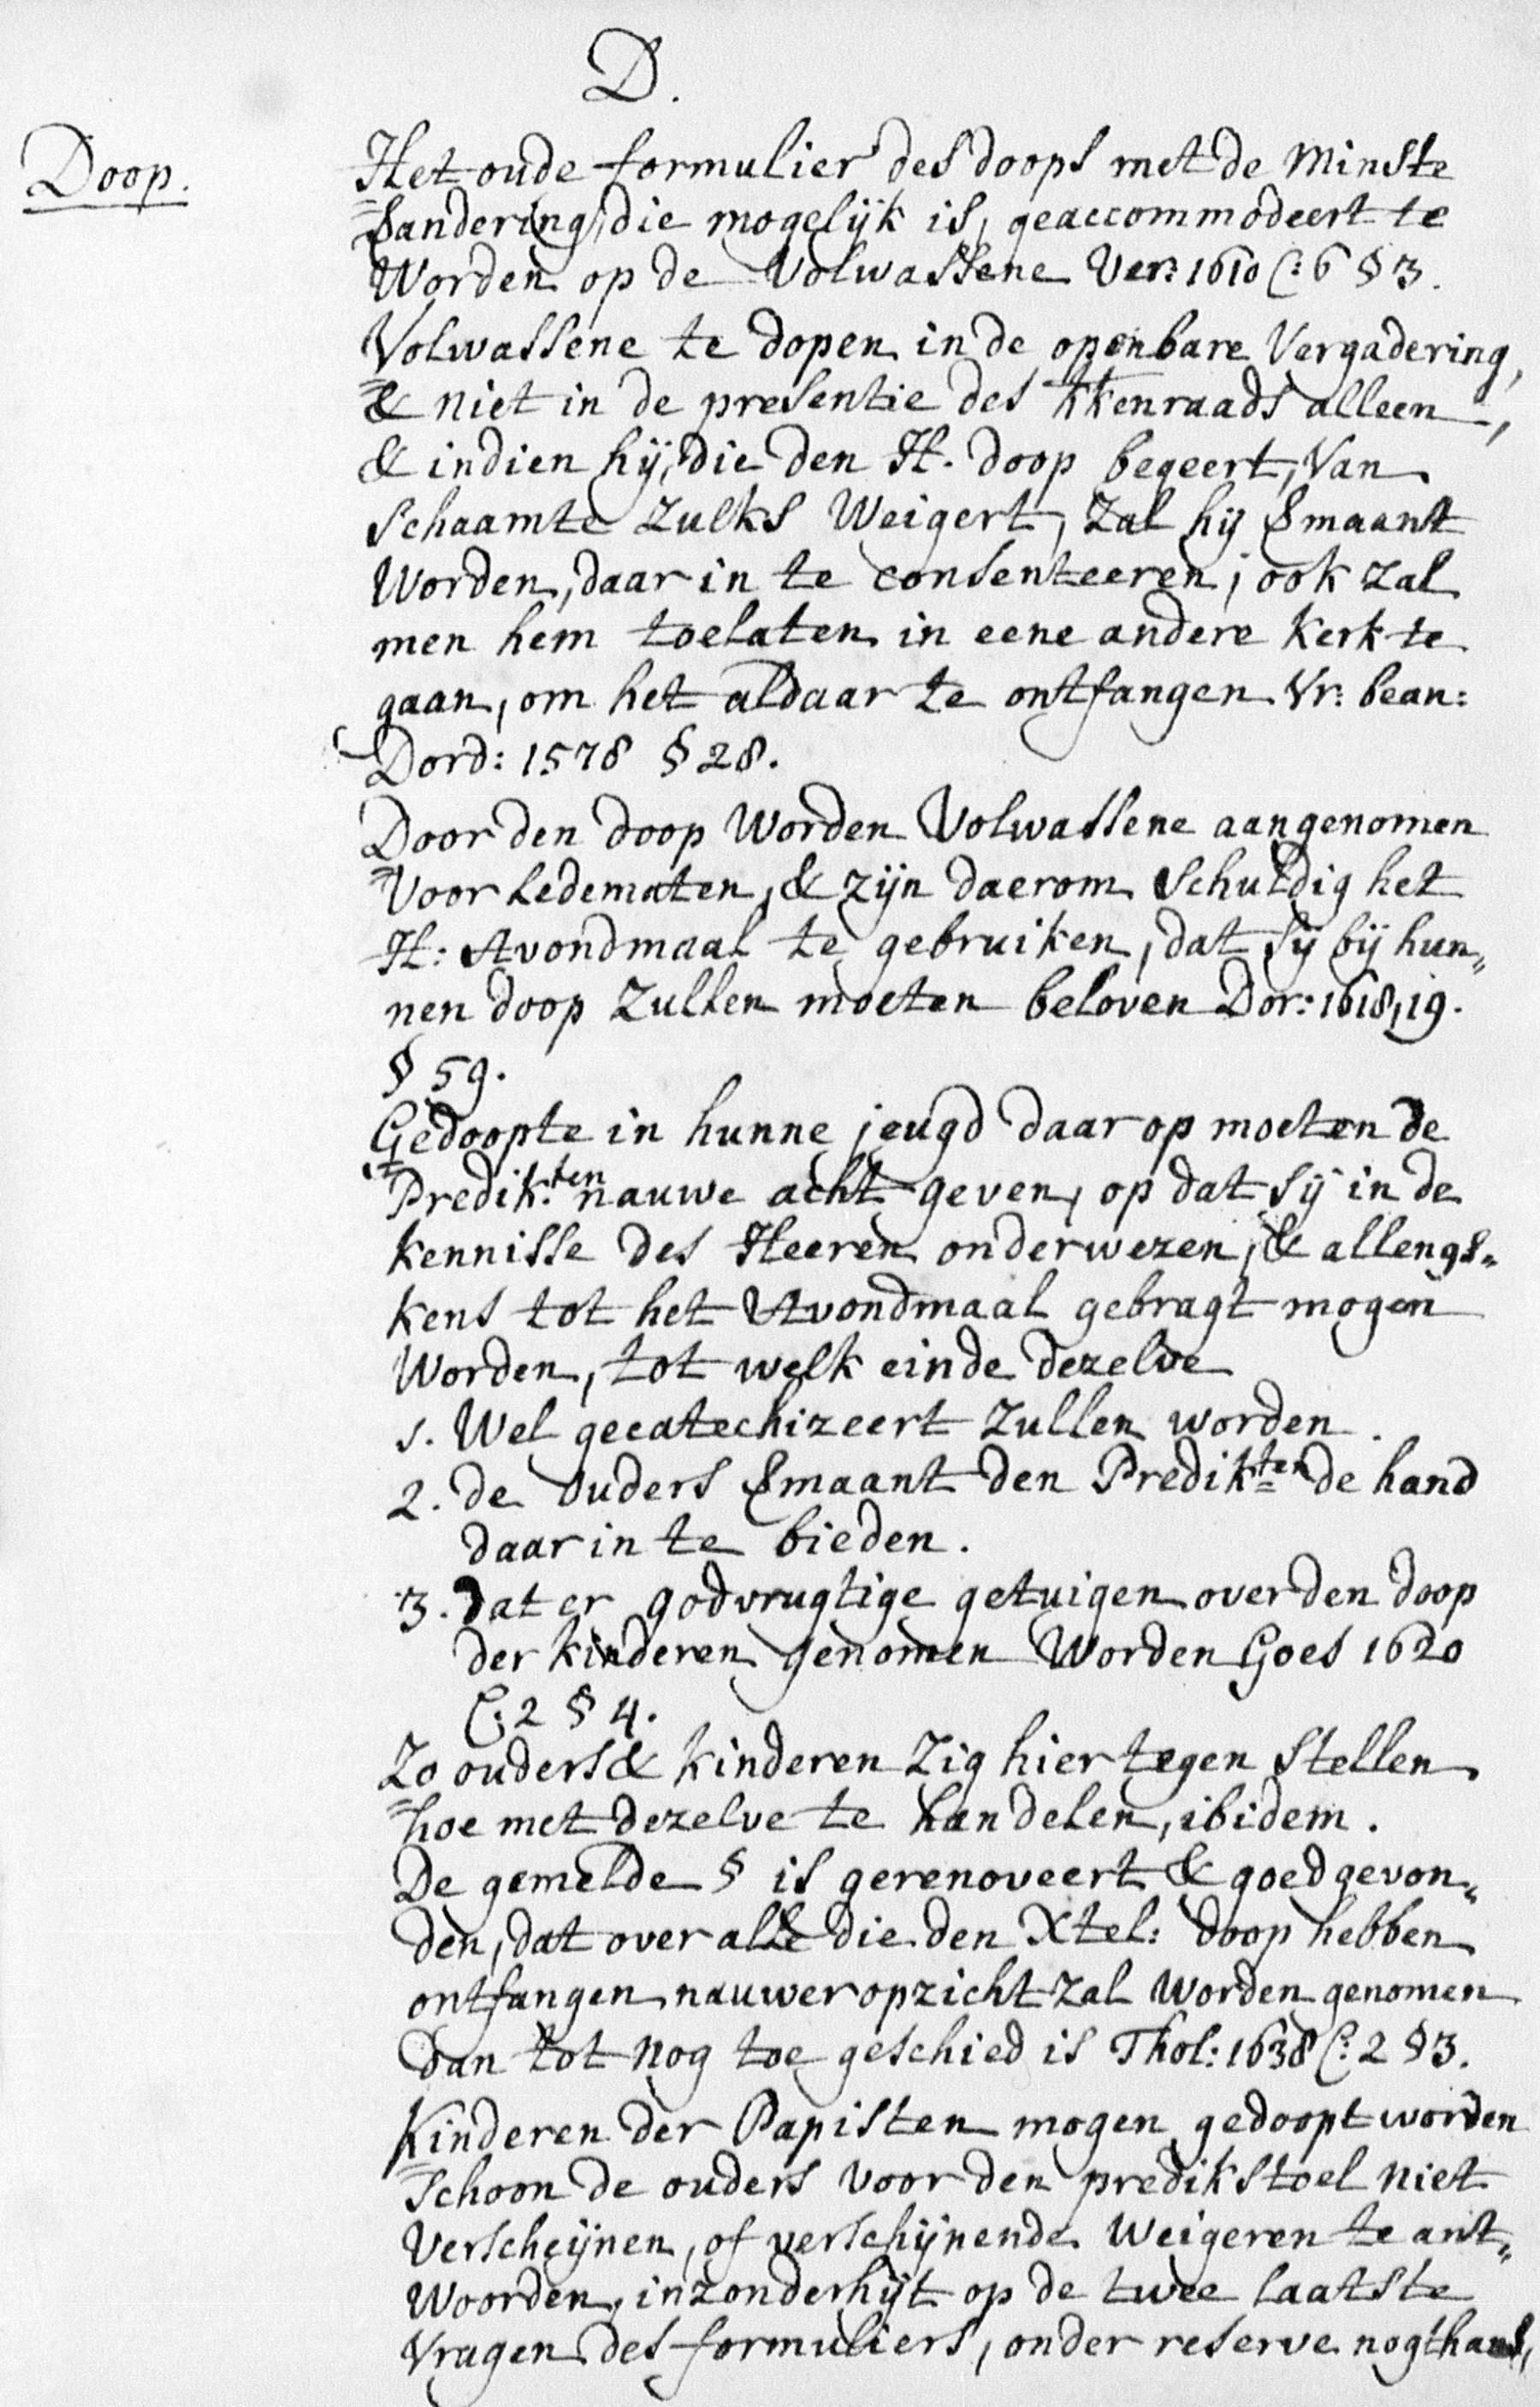 D.
Doop.
Het oude formulier des doops met de Minste
Verandering, die mogelijk is, geaccommodeert te
Worden op de Volwassene Ver: 1610 C: 6 § 3.
Volwassene te dopen in de openbare Vergadering,
& niet in de presentie des kkenraads alleen,
& indien hij, die den H. doop begeert, Van
Schaamte zulks Weigert, zal hij Vermaant
Worden, daar in te consenteeren; ook zal
men hem toelaten in eene andere Kerk te
gaan, om het aldaar te ontfangen Vr: bean:
Dord: 1578 § 28.
Door den doop Worden Volwassene aangenomen
Voor Ledematen, & zijn daerom Schuldig het
H: Avondmaal te gebruiken, dat sij bij hun„
nen doop Zullen moeten beloven Dor: 1618,19.
§ 59.
Gedoopte in hunne jeugd daar op moeten de
Predik:ten nauwe acht geven, op dat sij in de
kennisse des Heeren onderwezen, & allengs„
kens tot het Avondmaal gebragt mogen
Worden, tot welk einde dezelve
1. Wel gecatechizeert Zullen worden.
2. de ouders Vermaant den Predikten de hand
daar in te bieden.
3. dat er godvrugtige getuigen over den doop
der kinderen genomen Worden Goes 1620
C: 2 § 4.
Zo ouders & kinderen Zig hier tegen Stellen
hoe met dezelve te handelen, ibidem.
De gemelde § is gerenoveert & goedgevon„
den, dat over alle die den Xtel: doop hebben
ontfangen nauwer opzicht zal Worden genomen
Dan tot nog toe geschied is Thol: 1638 C: 2 § 3.
Kinderen der Papisten mogen gedoopt worden
Schoon de ouders Voor den predikstoel niet
Verscheijnen, of verschijnende Weigeren te ant„
Woorden, inzonderhijt op de twee laatste
Vragen des formuliers, onder reserve nogthans,